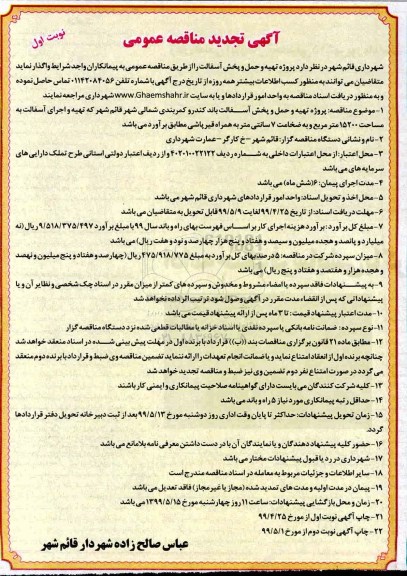 نوبت اول
آگهی تجدید مناقصه عمومی
شهرداری قائم شهر در نظر دارد پروژه تهیه و حمل و پخش آسفالت را از طریق مناقصه عمومی به پیمانکاران واجد شرایط واگذار نماید
متقاضیان می توانند به منظور کسب اطلاعات بیشتر همه روزه از تاریخ درج آگهی با شماره تلفن ۰۱۱۴۲۰۸۴۰۵۶ تماس حاصل نموده
و به منظور دریافت اسناد مناقصه به واحد امور قراردادها و یا به سایت www.Ghaemshahr.ir شهرداری مراجعه نمایند
۱- موضوع مناقصه: پروژه تهیه و حمل و پخش آسفالت باند کندرو کمربندی شمالی شهر قائم شهر که تهیه و اجرای آسفالت به
مساحت ۱۵۲۰۰ متر مربع و به ضخامت ۷ سانتی متر به همراه قیر پاشی مطابق برآورد می باشد
۲- نام و نشانی دستگاه مناقصه گزار: قائم شهر -خ کارگر -عمارت شهرداری
۳- محل اعتبار: از محل اعتبارات داخلی به شماره ردیف ۴۰۲۰۱۰۰۲۲۱۲۲ و از ردیف اعتبار دولتی استانی طرح تملک دارایی های
سرمایه های می باشد
۴- مدت اجرای پیمان: ۶(شش ماه) می باشد
۵- محل اخذ و تحویل اسناد: واحد امور قراردادهای شهرداری قائم شهر می باشد
۶- مهلت دریافت اسناد: از تاریخ ۹۹/۴/۲۵ لغایت ۹۹/۵/۹ قابل تحویل به متقاضیان می باشد
۷- مبلغ کل برآورد: برآورد هزینه اجرای کار بر اساس فهرست بهای راه و باند سال ۹۹ با مبلغ برآورد ۹/۵۱۸/۳۷۵/۴۹۷ ریال (نه
میلیارد و پانصد و هجده میلیون و سیصد و هفتاد و پنج هزار چهارصد و نود و هفت ریال) می باشد
۸- میزان سپرده شرکت در مناقصه: ۵ درصد بهای کل برآورد به مبلغ ۴۷۵/۹۱۸/۷۷۵ ریال (چهارصد و هفتاد و پنج میلیون و نهصد و
هجده هزار و هفتصد و هفتاد و پنج ریال) می باشد
۹- به پیشنهادات فاقد سپرده یا امضاء مشروط و مخدوش و سپرده های کمتر از میزان مقرر در اسناد چک شخصی و نظایر آن و یا
پیشنهاداتی که پس از انقضاء مدت مقرر در آگهی وصول شود ترتیب اثر داده نخواهد شد
۱۰- مدت اعتبار پیشنهاد قیمت: تا ۳ ماه پس از ارائه پیشنهاد قیمت می باشد
۱۱- نوع سپرده: ضمانت نامه بانکی یا سپرده نقدی یا اسناد خزانه یا مطالبات قطعی شده نزد دستگاه مناقصه گزار
۱۲- مطابق ماده ۲۱ قانون برگزاری مناقصات بند ((ب)) قرارداد با برنده اول در مهلت پیش بینی شده در اسناد منعقد خواهد شد
چنانچه برنده اول از انعقاد امتناع نماید و یا ضمانت انجام تعهدات را ارائه ننماید تضمین مناقصه وی ضبط و قرارداد با برنده دوم منعقد
می گردد در صورت امتناع نفر دوم تضمین وی نیز ضبط و مناقصه تجدید خواهد شد
۱۳- کلیه شرکت کنندگان می بایست دارای گواهینامه صلاحیت پیمانکاری و ایمنی کار باشند
۱۴- حداقل رتبه پیمانکاری مورد نیاز ۵ راه و باند می باشد
۱۵- زمان تحویل پیشنهادات: حداکثر تا پایان وقت اداری روز دوشنبه مورخ ۹۹/۵/۱۳ بعد از ثبت دبیرخانه تحویل دفتر قراردادها
گردد.
۱۶- حضور کلیه پیشنهاد دهندگان و یا نمایندگان آن با در دست داشتن معرفی نامه بلامانع می باشد
۱۷- شهرداری در رد یا قبول پیشنهادات مختار می باشد
۱۸- سایر اطلاعات و جزئیات مربوط به معامله در اسناد مناقصه مندرج است
۱۹- پیمان در مدت اولیه و مدت های تمدید شده (مجاز یا غیر مجاز) فاقد تعدیل می باشد
۲۰- زمان و محل بازگشایی پیشنهادات: ساعت ۱۱ روز چهارشنبه مورخ ۱۳۹۹/۵/۱۵ می باشد
۲۱- چاپ آگهی نوبت اول از مورخ ۹۹/۴/۲۵
۲۲- چاپ آگهی نوبت دوم از مورخ ۹۹/۵/۱
عباس صالح زاده شهردار قائم شهر